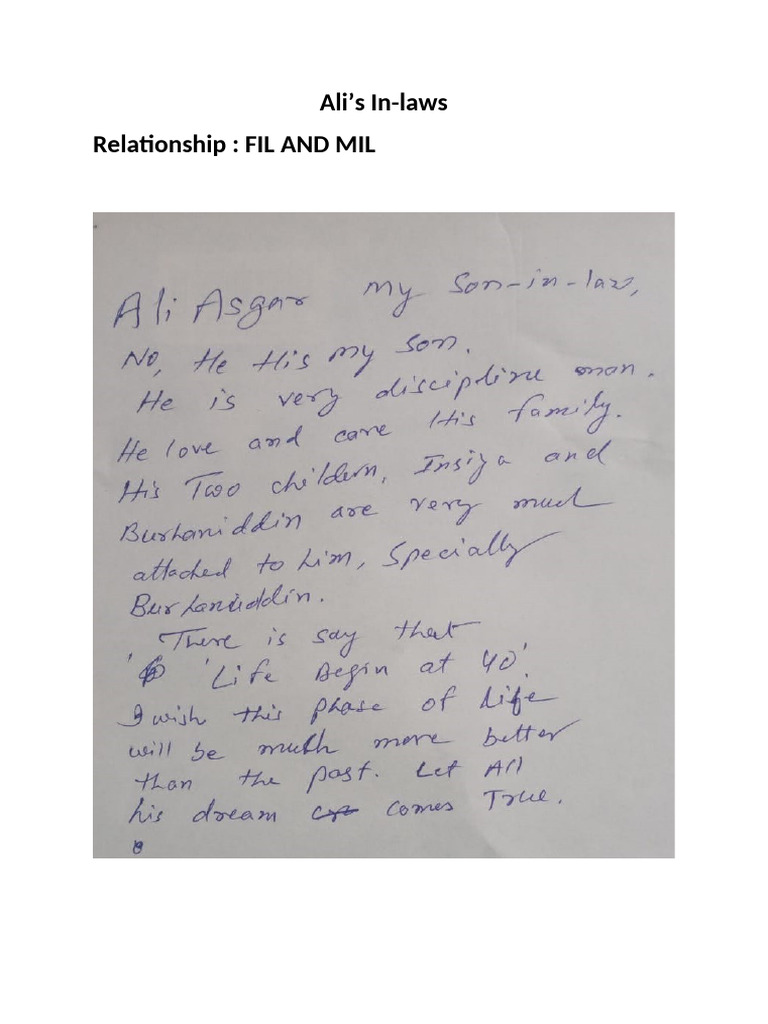 Ali's In-laws
Relationship : FIL AND MIL
Ali Asgar my Son-in-law,
No, He His my son.
He is very discipline man.
He love and care His family.
His Two childern, Insiya and
Burhaniddin are very much
attached to him, Specially
Burhanuddin.
'There is say that
'Life Begin at 40'.
I wish this phase of life
will be much more better
than the past. Let All
his dream comes True.